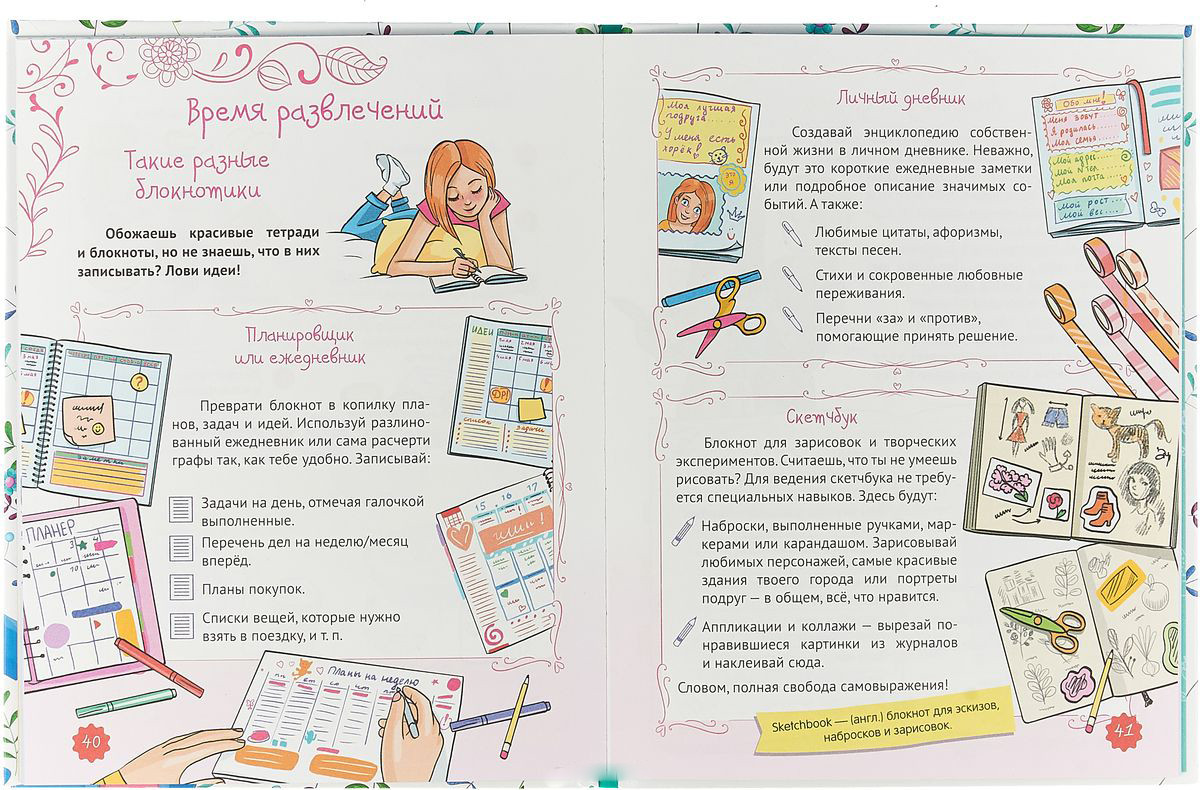 Время развлечений
Такие разные
блокнотики
Обожаешь красивые тетради
и блокноты, но не знаешь, что в них
записывать? Лови идеи!
Планировщик
или ежедневник
Преврати блокнот в копилку пла-
нов, задач и идей. Используй разлино-
ванный ежедневник или сама расчерти
графы так, как тебе удобно. Записывай:
Задачи на день, отмечая галочкой
выполненные.
Перечень дел на неделю/месяц
вперёд.
Планы покупок.
Списки вещей, которые нужно
взять в поездку, и т. п.
ИДЕИ
ДР!
СПИСОК
ЗАДАЧИ
ЗАМЕТКИ
ПЛАНЕР
15 16 17
Планы на неделю
пн вт ср чт пт
40
Моя лучшая
подруга
У меня есть
хорёк!
ЭТО
Я
Личный дневник
Создавай энциклопедию собствен-
ной жизни в личном дневнике. Неважно,
будут это короткие ежедневные заметки
или подробное описание значимых со-
бытий. А также:
Любимые цитаты, афоризмы,
тексты песен.
Стихи и сокровенные любовные
переживания.
Перечни «за» и «против»,
помогающие принять решение.
Обо мне!
Меня зовут
Я родилась...
Моя семья...
Мой адрес....
Мой № тел....
Моя почта....
Мой рост...
Мой вес...
Скетчбук
Блокнот для зарисовок и творческих
экспериментов. Считаешь, что ты не умеешь
рисовать? Для ведения скетчбука не требу-
ется специальных навыков. Здесь будут:
Наброски, выполненные ручками, мар-
керами или карандашом. Зарисовывай
любимых персонажей, самые красивые
здания твоего города или портреты
подруг — в общем, всё, что нравится.
Аппликации и коллажи — вырезай по-
нравившиеся картинки из журналов
и наклеивай сюда.
Словом, полная свобода самовыражения!
Sketchbook — (англ.) блокнот для эскизов,
набросков и зарисовок.
41